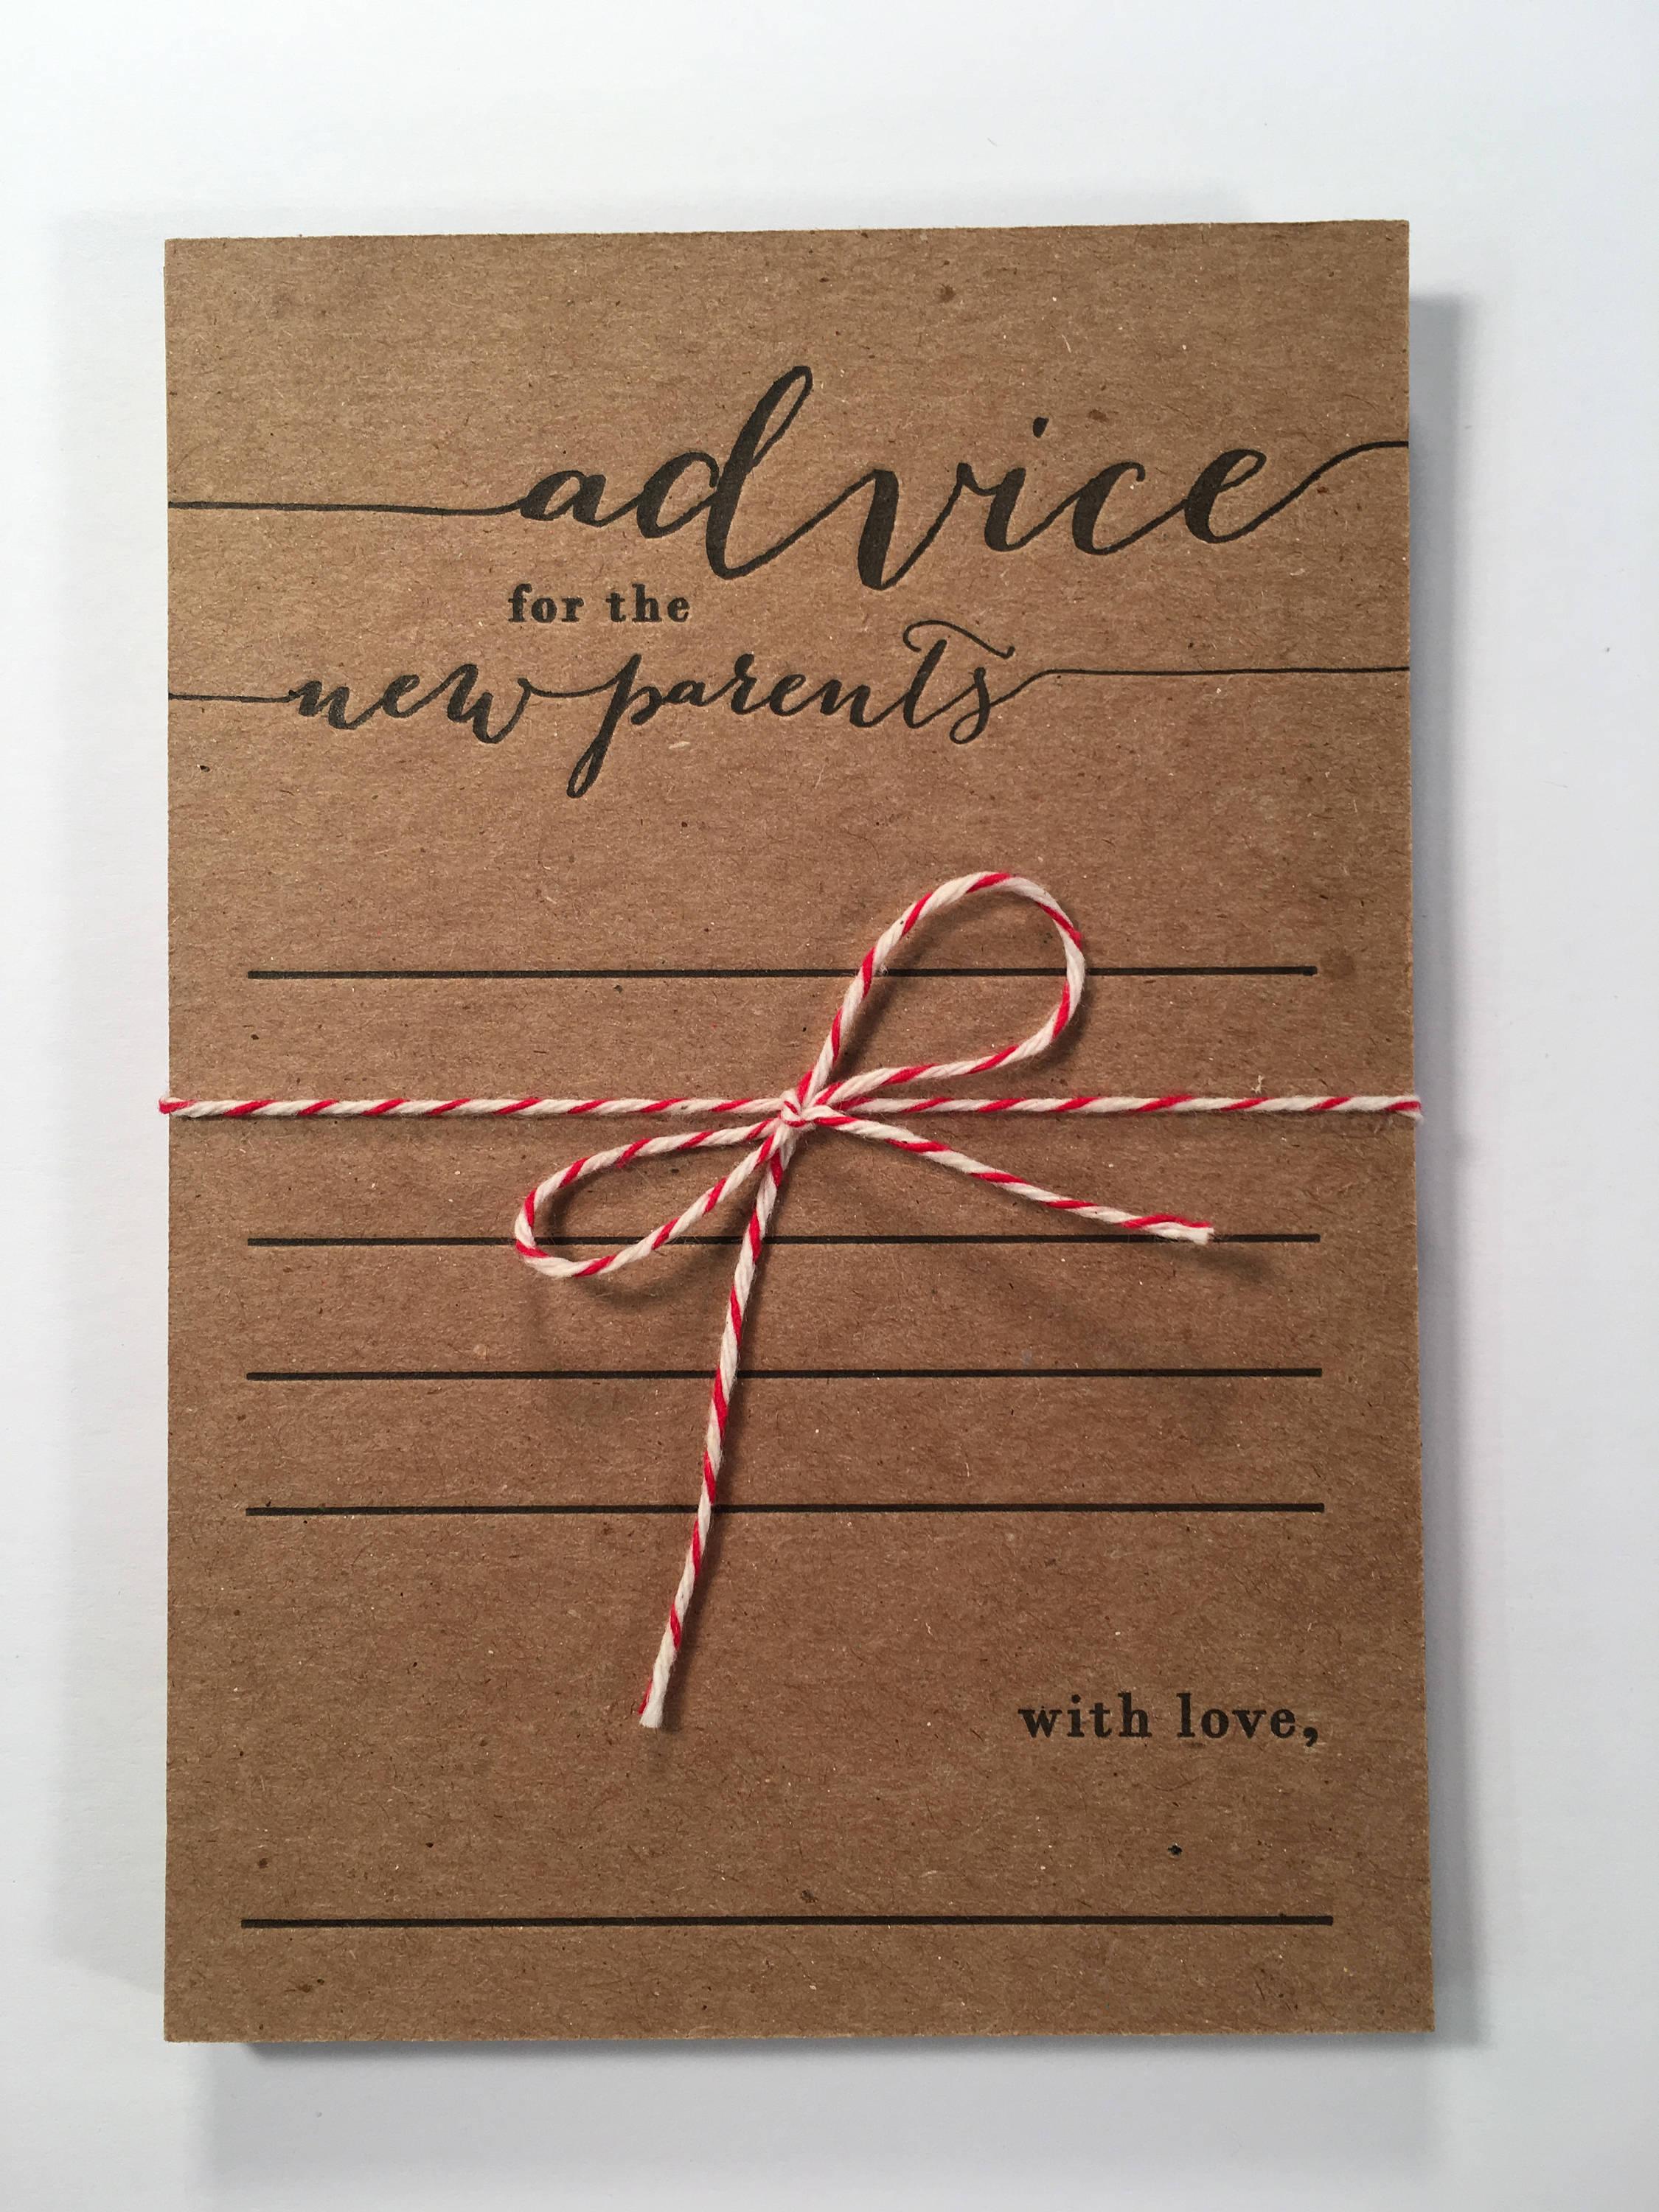 advice
for the
new parents
with love,